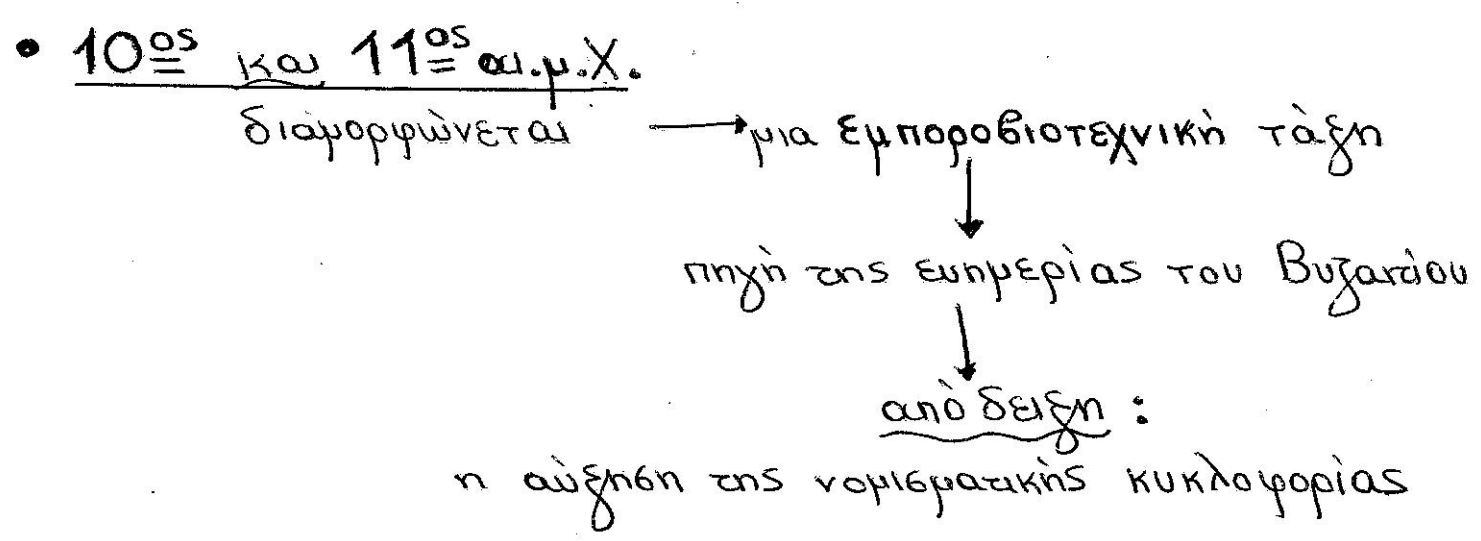 • 10ος και 11ος αι.μ.Χ.
διαμορφώνεται → μια εμποροβιοτεχνική τάξη
↓
πηγή της ευημερίας του Βυζαντίου
↓
απόδειξη :
η αύξηση της νομισματικής κυκλοφορίας